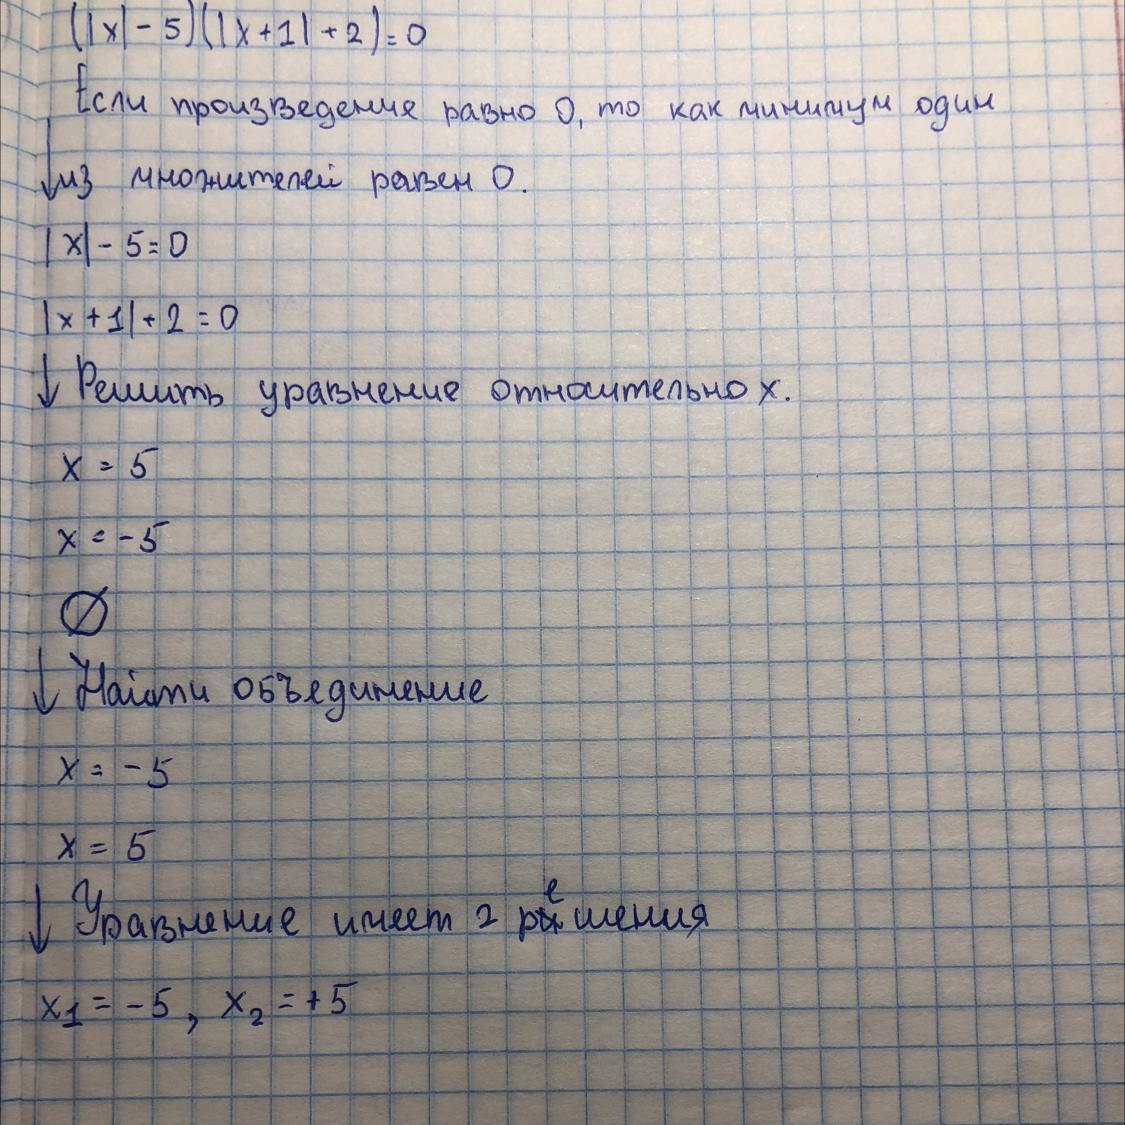 (|x| - 5)(|x+1| + 2) = 0
Если произведение равно 0, то как минимум один
↓ из множителей равен 0.
|x| - 5 = 0
|x + 1| + 2 = 0
↓ Решить уравнение относительно x.
x = 5
x = -5
∅
↓ Найти объединение
x = -5
x = 5
↓ Уравнение имеет 2 решения
x₁ = -5, x₂ = +5